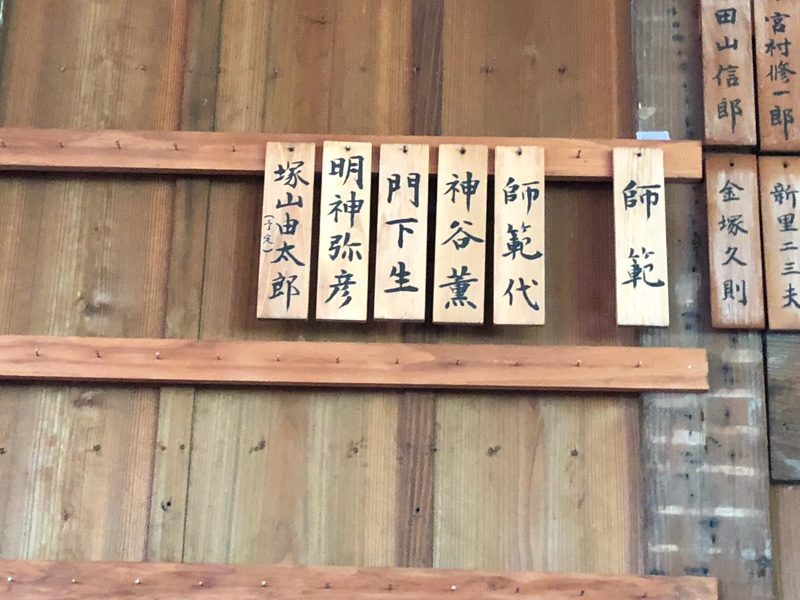 宮村修一郎
田山信郎
新里二三夫
金塚久則
師範
師範代
神谷薫
門下生
明神弥彦
塚山由太郎
(予定)